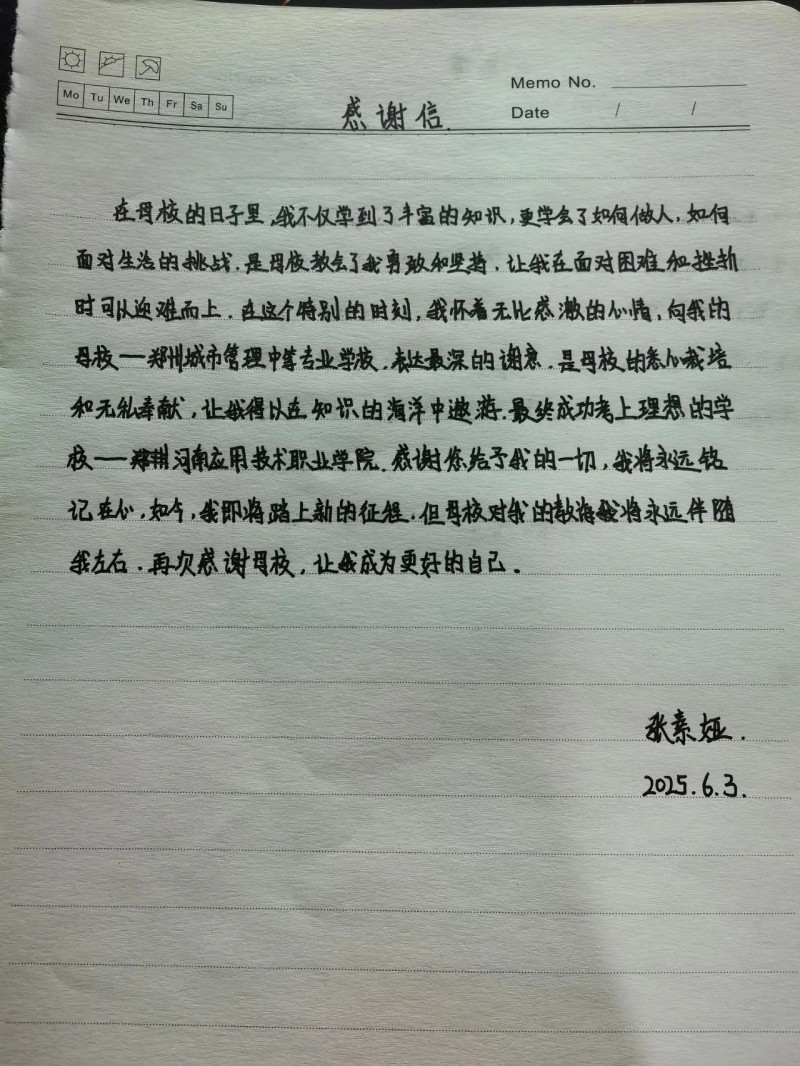 Memo No.
Mo Tu We Th Fr Sa Su
Date / /
感谢信.
在母校的日子里,我不仅学到了丰富的知识,更学会了如何做人,如何
面对生活的挑战.是母校教会了我勇敢和坚持,让我在面对困难和挫折
时可以迎难而上.在这个特别的时刻,我怀着无比感激的心情,向我的
母校——郑州城市管理中等专业学校,表达最深的谢意.是母校的悉心栽培
和无私奉献,让我得以在知识的海洋中遨游.最终成功考上理想的学
校——河南应用技术职业学院.感谢您给予我的一切,我将永远铭
记在心,如今,我即将踏上新的征程.但母校对我的教诲将永远伴随
我左右.再次感谢母校,让我成为更好的自己。
张素娅.
2025.6.3.